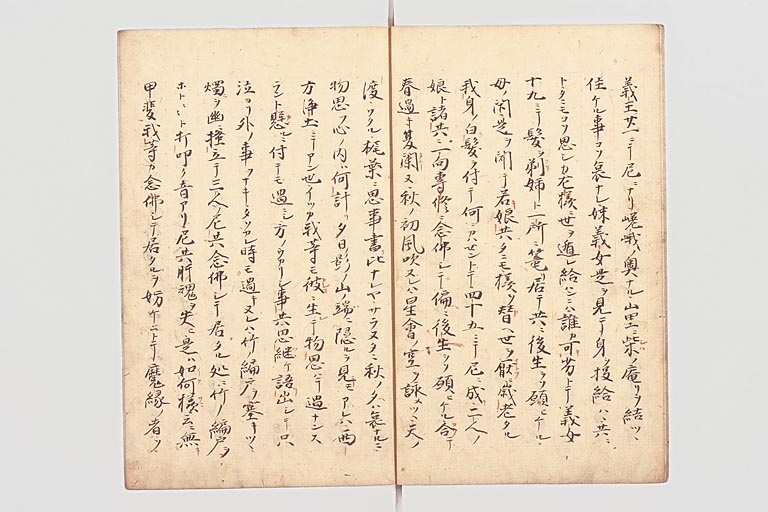 義王廿一ニテ尼ニナリ嵯峨ノ奥ナル山里ニ柴ノ庵リヲ結ヒテ
住ケル事コソ哀ナレ妹義女是ヲ見テ身ヲ投給ハヽ共ニ
トタニモコソ思シカ右様世ヲ遁レ給ハンニハ誰カ可劣トテ義女
十九ニテ髪ヲ剃姉ト一所ニ篭居テ共ニ後生ヲソ願ヒケル
母ノ閇是ヲ聞テ若娘共タニモ様ヲ替ヘ世ヲ厭歳老タル
我身ノ白髪ヲ付テ何ニカセントテ四十五ニテ尼ニ成二人ノ
娘ト諸共ニ一向専修ニ念佛シテ偏ニ後生ヲソ願ヒケル合テ
春過キ夏闌ヌ秋ノ初風吹ヌレハ星會ノ空ヲ詠メツヽ天ノ
渡ツクル梶葉ニ思事書比ナレヤサラヌタニ秋ノ夕ハ哀ナルニ
物思フ心ノ内ハ何計ソ夕日影ノ山ノ端ニ隠ルヲ見テモアレハ西
方浄土ニテアン也イツカ我等モ彼ニ生テ物思ハテ過ナンス
ラント懸ルニ付テモ過シ方ノウカリシ事共思継ケ語出シテ只
泣ヨリ外ノ事ソナキタソカレ時モ過キヌレハ竹ノ編戸ヲ塞キツヽ
燭ヲ幽掻立テ三人ノ尼共念佛シテ居タル処ニ竹ノ編戸ヲ
ホトホト打叩ク音アリ尼共肝魂ヲ失ヒ是ハ如何様ニモ無
甲斐我等カ念佛シテ居タルヲ妨ケントテ魔縁ノ者ヲ